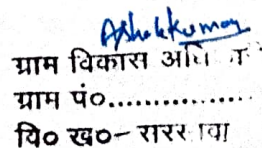 Ashok Kumar
ग्राम विकास अधि
ग्राम पं०................
वि० ख०- सरसावा